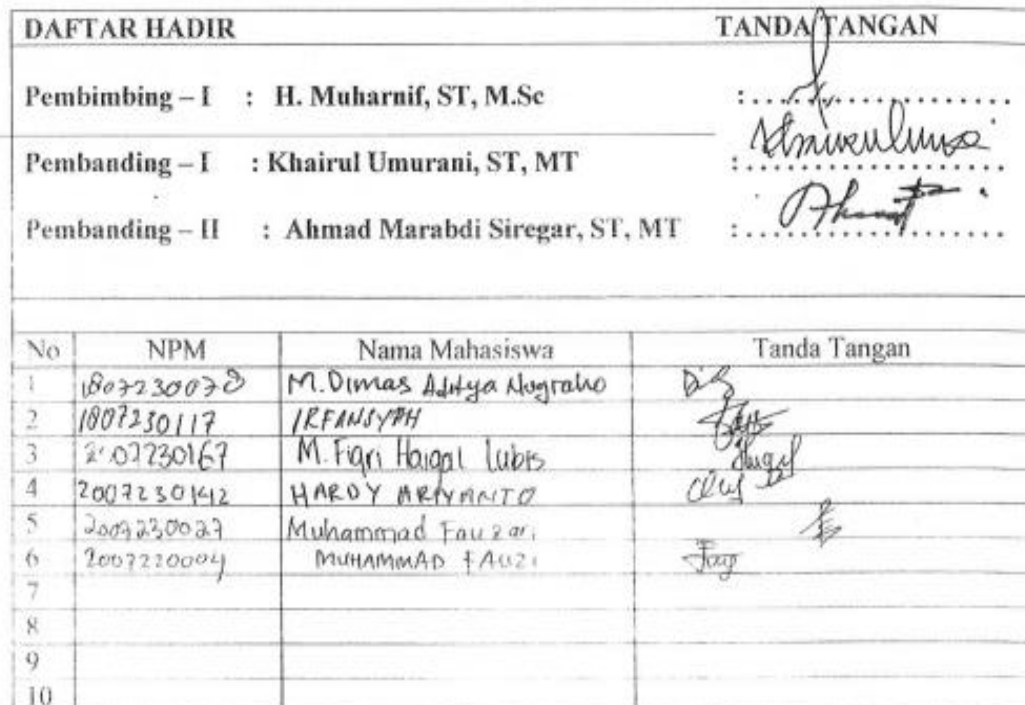 DAFTAR HADIR TANDA TANGAN
Pembimbing – I : H. Muharnif, ST, M.Sc :....................
Pembanding – I : Khairul Umurani, ST, MT :....................
Pembanding – II : Ahmad Marabdi Siregar, ST, MT :....................
No NPM Nama Mahasiswa Tanda Tangan
1 1807230078 M. Dimas Aditya Nugraho
2 1807230117 IRFANSYAH
3 2007230167 M. Fiqri Haiqal Lubis
4 2007230142 HARDY ARIYANTO
5 2007230027 Muhammad Fauzari
6 2007220004 MUHAMMAD FAUZI
7
8
9
10